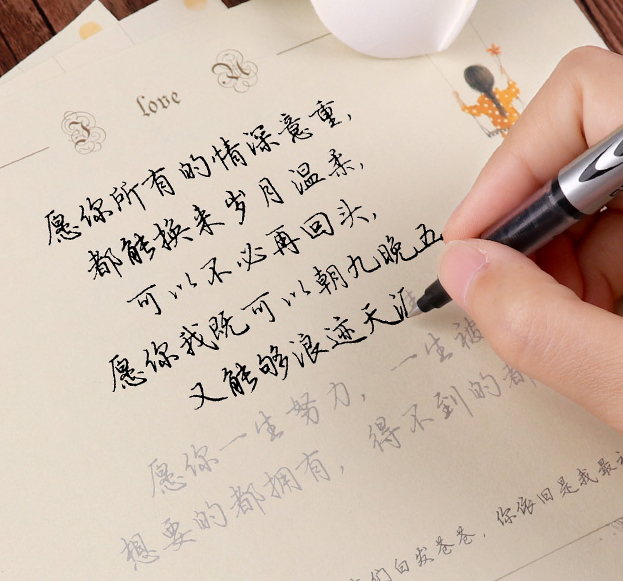 I Love U
愿你所有的情深意重,
都能换来岁月温柔,
可以不必再回头,
愿你我既可以朝九晚五
又能够浪迹天涯
愿你一生努力, 一生被
想要的都拥有, 得不到的都
们白发苍苍, 你依旧是我最